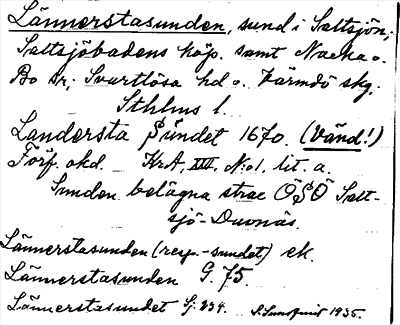 Lännerstasunden, sund i Saltsjön,
Saltsjöbadens köp. samt Nacka o.
Bo sr, Svartlösa hd o. Värmdö skg.
Sthlms l.
Landersta Sundet 1670. (Vänd!)
Förf. okd. KrA, XVII, N:o1, lit. a.
Sunden belägna strax ÖSÖ Salt-
sjö-Duvnäs.
Lännerstasunden (resp. -sundet) ek.
Lännerstasunden G. 75.
Lännerstasundet Sj. 234. 1935.